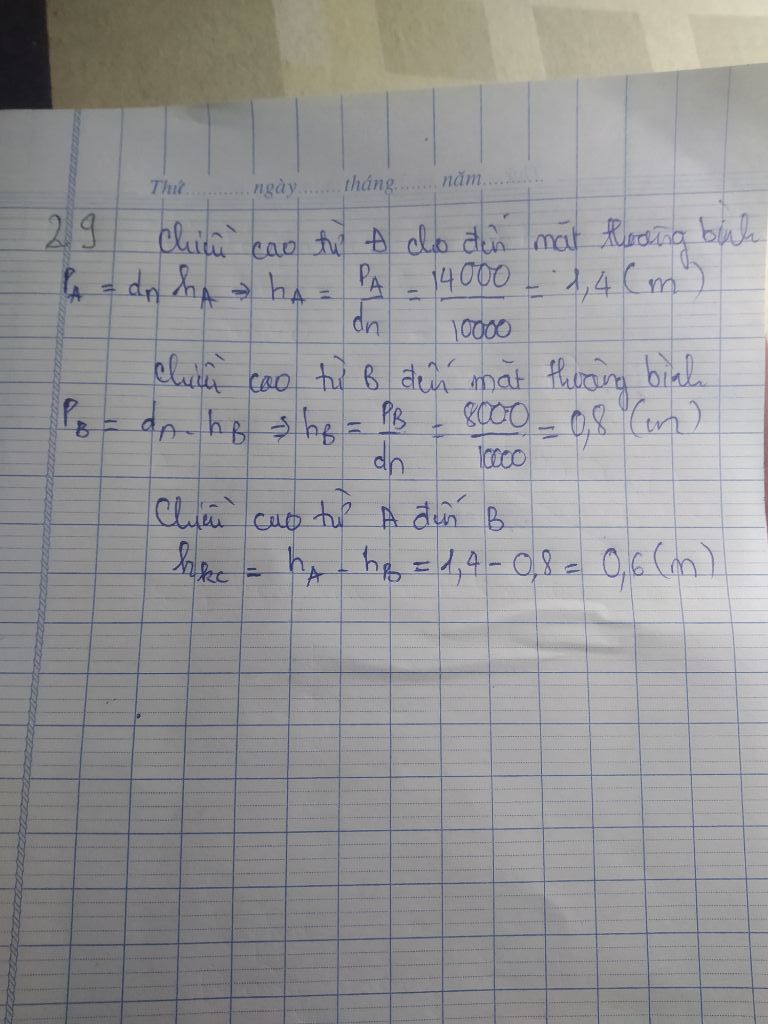 Thứ............ngày........tháng........năm............
29 Chiều cao từ A cho đến mặt thoáng bình
P_A = d_n h_A ⇒ h_A = P_A/d_n = 14000/10000 = 1,4 (m)
Chiều cao từ B đến mặt thoáng bình
P_B = d_n . h_B ⇒ h_B = P_B/d_n = 8000/10000 = 0,8 (m)
Chiều cao từ A đến B
h_kc = h_A - h_B = 1,4 - 0,8 = 0,6 (m)